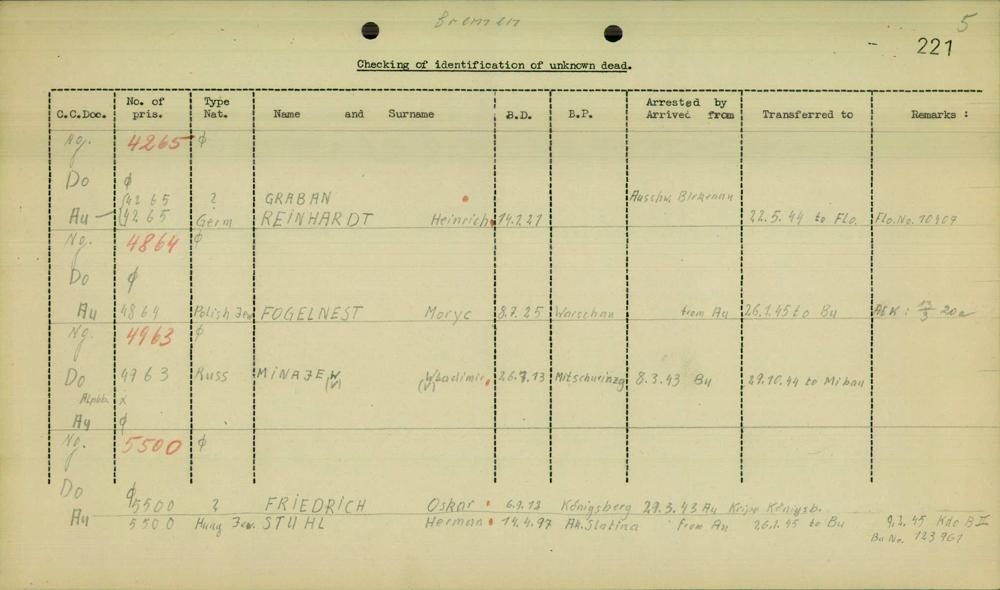 Bremen
5
- 221
Checking of identification of unknown dead.
C.C.Doc. No. of pris. Type Nat. Name and Surname B.D. B.P. Arrested by Arrived from Transferred to Remarks :
Ng. 4265 ϕ
Do ϕ
4265 ? GRABAN Auschw. Birkenau
Au 4265 Germ REINHARDT Heinrich 14.1.21 22.5.44 to Flo. Flo.No. 10407
Ng. 4864 ϕ
Do ϕ
Au 4864 Polish Jew FOGELNEST Moryc 8.7.25 Warschau from Au 26.1.45 to Bu 20a
Ng. 4963 ϕ
Do 4963 Russ MINAJEW (V) Wladimir (V) 26.7.13 Mitschurinzg 8.3.43 Bu 29.10.44 to Mibau
Alphb. x
Au ϕ
Ng. 5500 ϕ
Do ϕ
5500 ? FRIEDRICH Oskar 6.9.12 Königsberg 29.3.43 Au Kripo Königsb.
Au 5500 Hung Jew STUHL Herman 14.4.97 Ak.Slatina from Au 26.1.45 to Bu 9.2.45 Kdo B II
Bu No. 123961